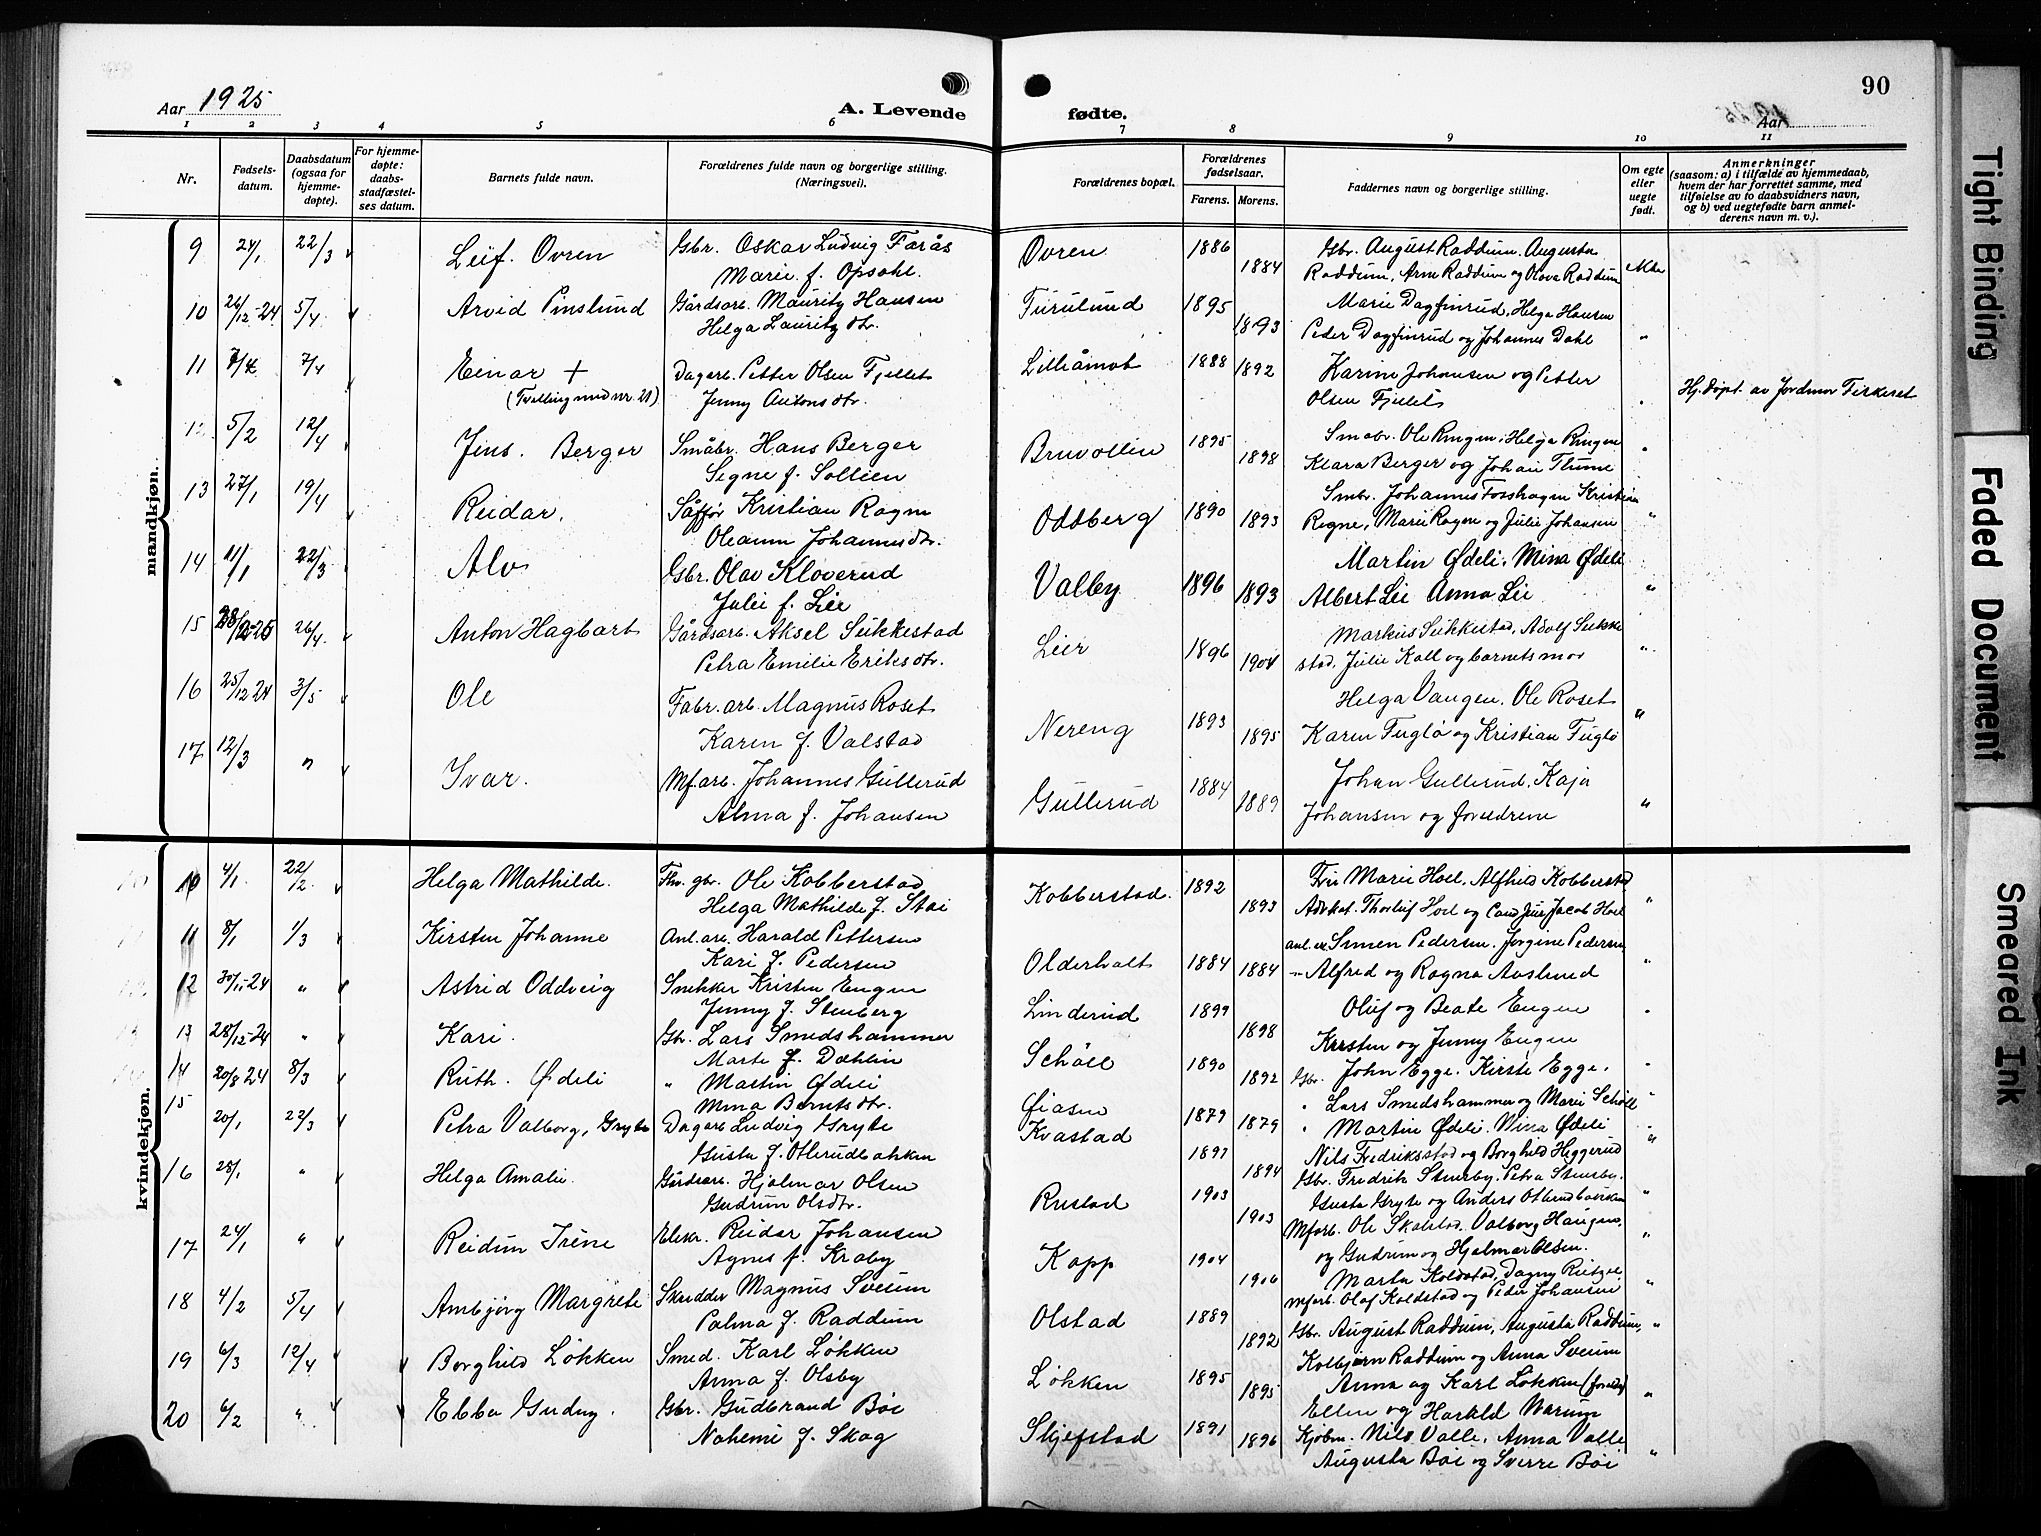 90
Aar 1925
A. Levende
fødte.
Aar
1 2 3 4 5 6 7 8 9 10 11
Nr.
Fødsels-
datum.
Daabsdatum
(ogsaa for
hjemme-
døpte).
For hjemme-
døpte:
daabs-
stadfæstel-
ses datum.
Barnets fulde navn.
Forældrenes fulde navn og borgerlige stilling.
(Næringsvei).
Forældrenes bopæl.
Forældrenes
fødselsaar.
Farens. Morens.
Faddernes navn og borgerlige stilling.
Om egte
eller
uegte
født.
Anmerkninger
(saasom: a) i tilfælde av hjemmedaab,
hvem der har forrettet samme, med
tilføielse av to daabsvidners navn,
og b) ved uegtefødte barn anmel-
derens navn m. v.).
mandkjøn.
9 24/1 22/3 Leif. Ovren Gbr. Oskar Ludvig Farås Ovren 1886 Gbr. August Raddum. Augusta
Marie f. Opsahl. 1884 Raddum, Arne Raddum og Olova Raddum
10 26/12-24 5/4 Arvid Pinslund Gårdsarb. Mauritz Hansen Furulund 1895 Marie Dagfinrud, Helga Hansen
Helga Lauritzdtr. 1893 Peder Dagfinrud og Johannes Dahl "
11 7/4 7/4 Einar + Dagarb. Petter Olsen Fjellet Lilleåmot 1888 1892 Karine Johansen og Petter
(Tvilling med nr. 21) Jenny Antonsdtr. Olsen Fjellet " Hj. døpt. av Jordmor Fiskeset
12 5/2 12/4 Jens. Berger Småbr. Hans Berger Bruvollen 1895 Småbr. Ole Ringen, Helga Ringen
Signe f. Sollien 1898 Klara Berger og Johan Thune "
13 27/1 19/4 Reidar. Sjåffør Kristian Rogne Oddberg 1890 Smbr. Johannes Fosshagen Kristian
Oleanna Johannesdtr. 1893 Rogne, Marie Rogne og Julie Johansen "
14 11/1 22/3 Alv Gbr. Olav Kloverud Valby 1896 Martin Ødeli, Mina Ødeli
Julie f. Lie 1893 Albert Lie Anna Lie "
15 28/2-25 26/4. Anton Hagbart Gårdsarb. Aksel Sukkestad Lier 1896 Markus Sukkestad, Adolf Sukke
Petra Emilie Eriksdtr. 1904 stad, Julie Kall og barnets mor "
16 25/12 24 3/5 Ole Fabr. arb. Magnus Roset Nereng 1893 Helga Vangen. Ole Roset
Karen f. Valstad 1895 Karen Fuglø og Kristian Fuglø "
17 12/3 " Ivar. Mf. arb. Johannes Gullerud Gullerud 1884 Johan Gullerud, Kaja
Alma f. Johansen 1889 Johansen og foreldrene "
kvindekjøn.
10 4/1 22/2. Helga Mathilde. Fhv. gbr. Ole Kobberstad Kobberstad. 1892 Fru Marie Hoel, Alfhild Kobberstad
Helga Mathilde f. Stai 1893 Advkat. Thorleif Hoel og Cand Jur Jacob Hoel "
11 8/1 1/3 Kirsten Johanne Anl. arb. Harald Pettersen Olderholt 1884 anl. arb. Simen Pedersen. Jørgine Pedersen
Kari f. Pedersen 1884 " Alfred og Ragna Auslund "
12 30/11-24 " Astrid Oddveig Snekker Kristen Engen Linderud 1899 Oluf og Beate Engen
Jenny f. Stenberg 1898 Kristen og Jenny Engen
13 28/12-24 " Kari. Gbr. Lars Smedshammer Schöll 1890 Gbr. John Egge. Kirste Egge.
Marte f. Dæhlin 1892 " Lars Smedshammer og Marie Schöll
14 20/8 24 8/3 Ruth. Ødeli " Martin Ødeli Øiasen 1879 " Martin Ødeli. Mina Ødeli
Mina Berntsdtr. 1879 Nils Fredriksstad og Borghild Heggerud
15 20/1 22/3 Petra Valborg, Gryte Dagarb Ludvig Gryte Kvastad 1897 Gbr. Fredrik Stenseby. Petra Stenseby.
Gusta f. Otterudbakken 1894 Gusta Gryte og Anders Otterudbakken "
16 25/1 " Helga Amalie. Gårdsarb. Hjalmar Olsen Rustad 1903 Mfarb. Ole Skolstad. Valborg Haugen.
Gudrun Olsdtr. 1903 og Gudrun og Hjalmar Olsen. "
17 24/1 " Reidun Irene Elekr. Reidar Johansen Kopp 1904 Marta Koldstad, Dagny
Agnes f. Kraby 1906 Mfarb. Olaf Koldstad og Peder Johansen "
18 4/2 5/4 Ambjörg Margrete Skredder Magnus Sveum Olstad 1889 Gbr. August Raddum, Augusta Raddum, "
Palma f. Raddum 1892 Kolbjørn Raddum og Anna Sveum
19 6/3 12/4 Borghild Løkken Smed. Karl Løkken Løkken 1895 Anna og Karl Løkken (foreldre)
Anna f. Olsby 1895 Ellen og Harald Narum "
20 6/2 " Ebba Gudny. Gbr. Gudbrand Böe Skjefstad 1891 Kjøbm. Nils Valle, Anna Valle
Nohemi f. Skog 1896 Augusta Böe og Sverre Böe "
Tight Binding
Faded Document
Smeared Ink